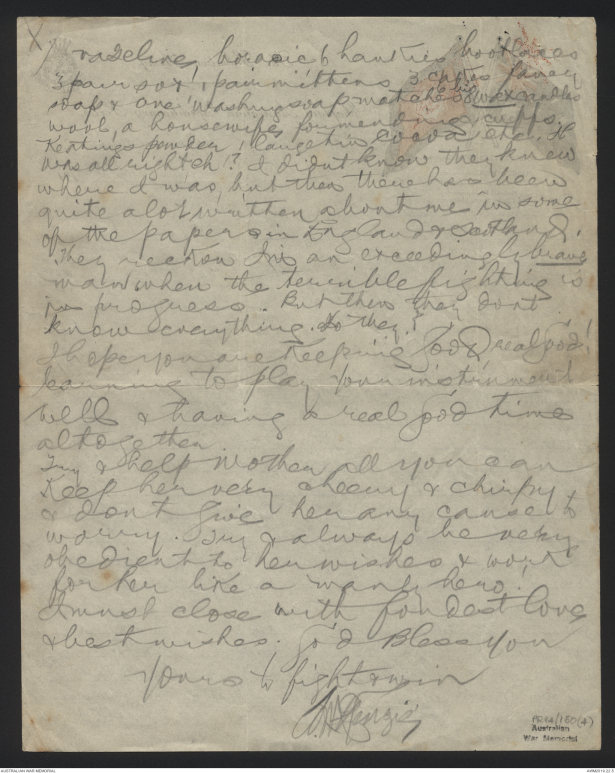 X
vaseline, boracic 6 hankies bootlaces
3 pair sox, 1 pair mittens 3 cakes fancy
soap & one washing soap matches
wool, a housewife, for mending,
Keatings powder, 1 large tin cocoa etc. It
was all right eh!? I didn't know they knew
where I was, but then there has been
quite a lot written about me in some
of the papers in England & Scotland.
They reckon I'm an exceedingly brave
man when the terrible fighting is
in progress. But then they don't
know everything do they!
I hope you are keeping Good real Good!
learning to play your instrument
well & having a real good time
altogether.
Try & help Mother all you can
Keep her very cheery & chirpy
& don't give her any cause to
worry. Try & always be very
obedient to her wishes & work
for her like a manly hero.
I must close with fondest love
& best wishes. God Bless you
Yours to fight & win
PR84/150(4)
Australian
War Memorial
AUSTRALIAN WAR MEMORIAL